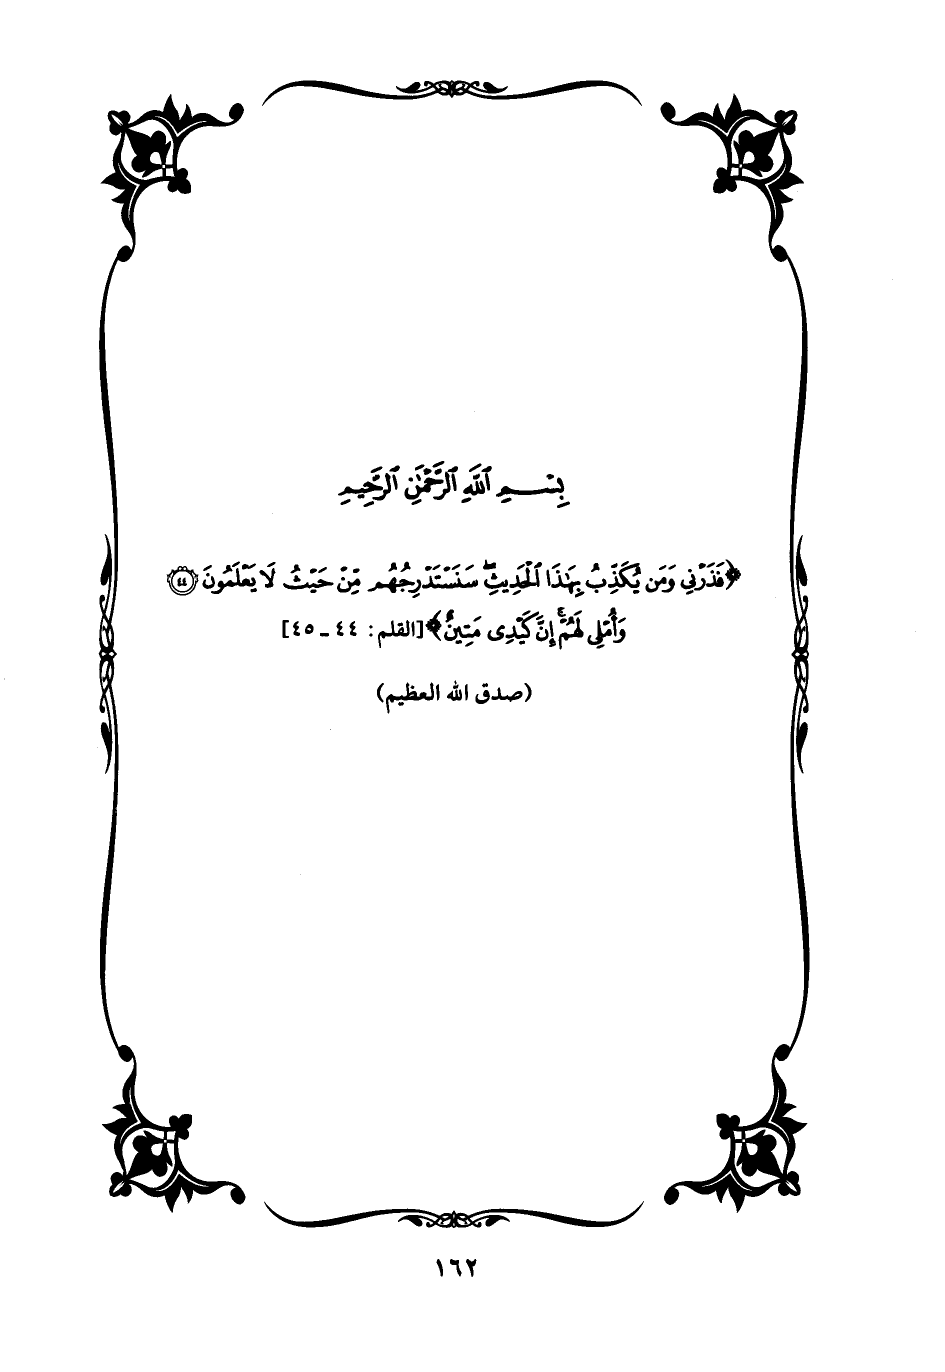 بِسْمِ ٱللَّهِ ٱلرَّحْمَٰنِ ٱلرَّحِيمِ
﴿فَذَرْنِى وَمَن يُكَذِّبُ بِهَٰذَا ٱلْحَدِيثِ ۖ سَنَسْتَدْرِجُهُم مِّنْ حَيْثُ لَا يَعْلَمُونَ ٤٤
وَأُمْلِى لَهُمْ ۚ إِنَّ كَيْدِى مَتِينٌ﴾ [القلم: ٤٤ ـ ٤٥]
(صدق الله العظيم)
١٦٢